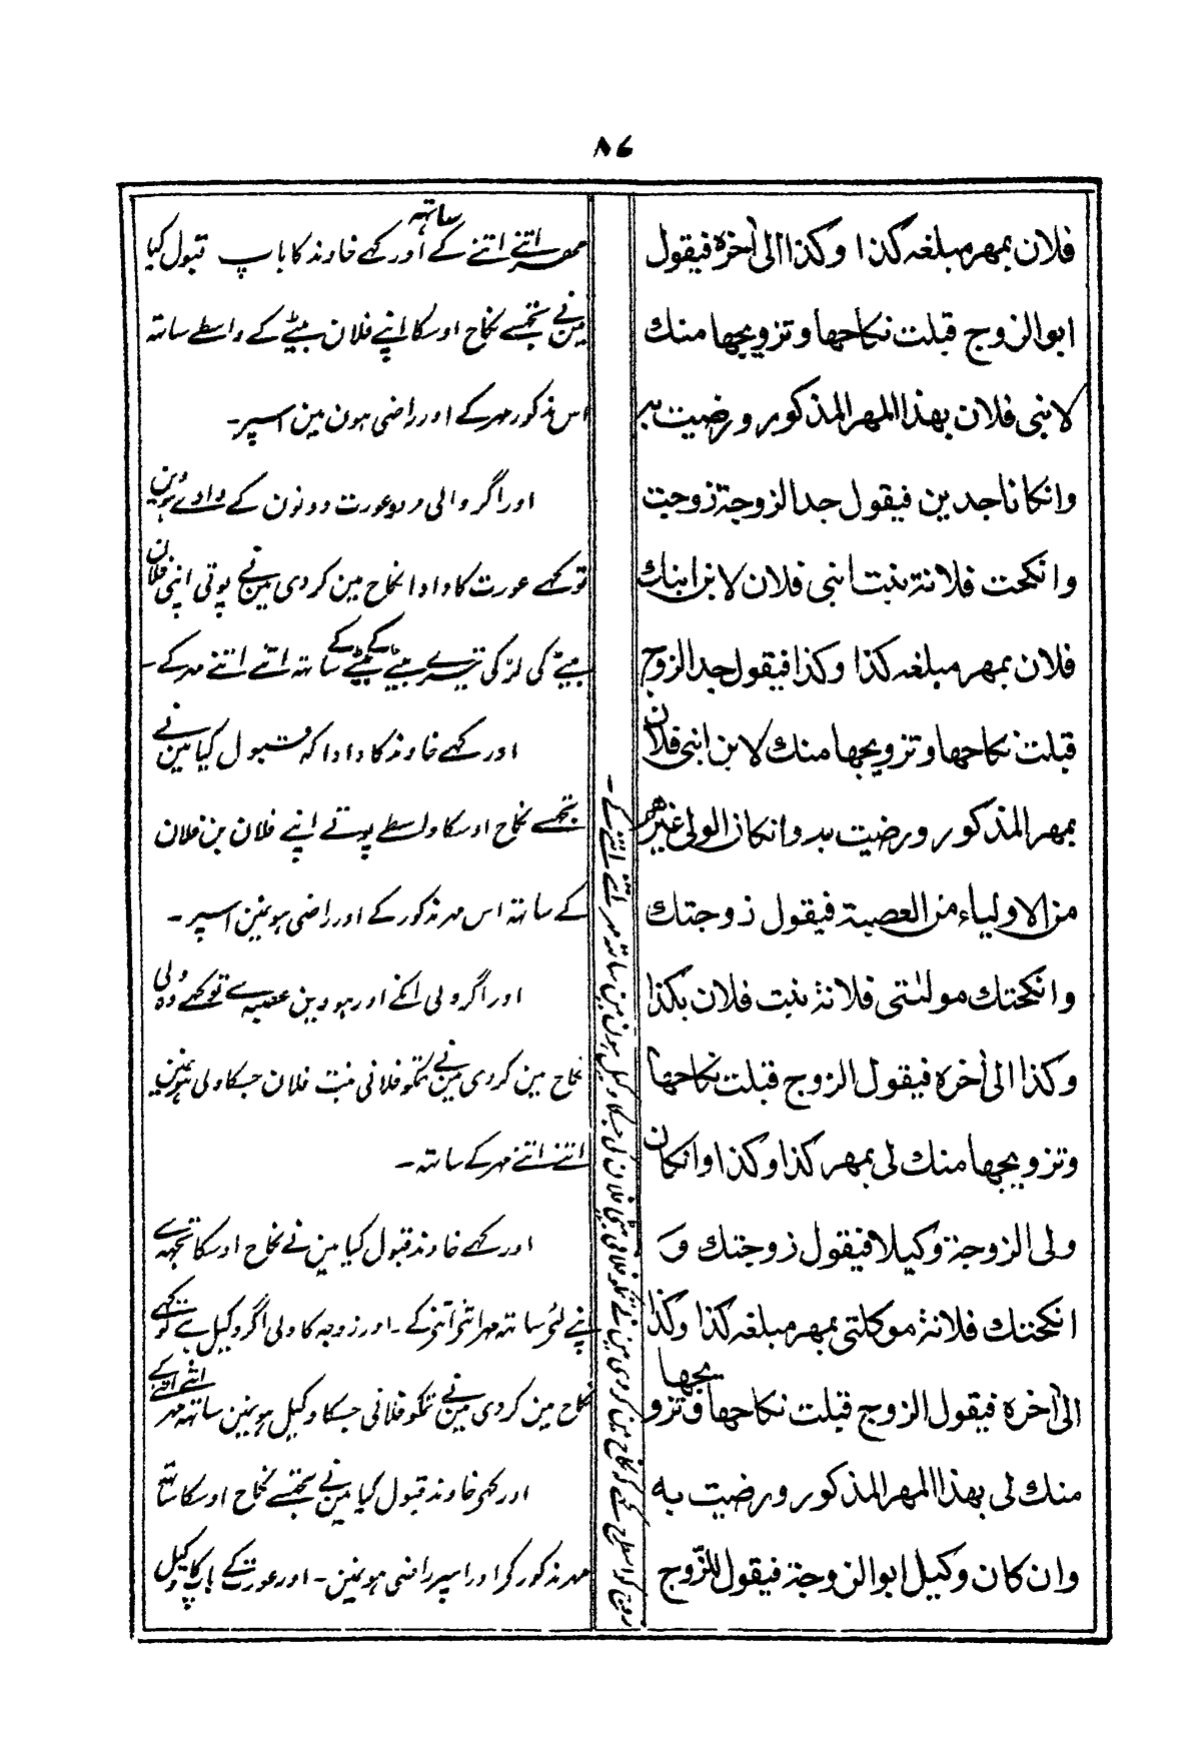 ٨٤
فلان بمهر مبلغه كذا وكذا الى أخره فيقول
ابو الزوج قبلت نكاحها وتزويجها منك
لابنى فلان بهذا المهر المذكور ورضيت به
وانكانا جدين فيقول جد الزوجة زوجت
وانكحت فلانة بنت ابنى فلان لابن ابنك
فلان بمهر مبلغه كذا وكذا فيقول جد الزوج
قبلت نكاحها وتزويجها منك لابن ابنى فلان
بمهر المذكور ورضيت به وانكان الولى غيرهم
من الاولياء من العصبة فيقول زوجتك
وانكحتك مولىتى فلانة بنت فلان بكذا
وكذا الى أخره فيقول الزوج قبلت نكاحها
وتزويجها منك لى بمهر كذا وكذا وانكان
ولى الزوجة وكيلا فيقول زوجتك و
انكحتك فلانة موكلتى بمهر مبلغه كذا وكذا
الى أخره فيقول الزوج قبلت نكاحها وتزويجها
منك لى بهذا المهر المذكور ورضيت به
وان كان وكيل ابو الزوجة فيقول للزوج
مهر اتنے اتنے کے ساتهہ اور کہے خاوند کا باپ قبول کیا
مین نے تجھسے نکاح اوسکا اپنے فلان بیٹے کے واسطے ساتهہ
اس مذکور مہر کے اور راضی ہون مین اسپر۔
اور اگر والی مرد و عورت دونون کے دادے ہووین
تو کہے عورت کا دادا نکاح مین کر دی مین نے پوتی اپنی فلان
بیٹے کی لڑکی تیرے بیٹے کے بیٹے کے ساتهہ اتنے اتنے مہر کے۔
اور کہے خاوند کا دادا کہ قبول کیا مین نے
تجھسے نکاح اوسکا واسطے پوتے اپنے فلان بن فلان
کے ساتهہ اس مہر مذکور کے اور راضی ہون مین اسپر۔
اور اگر ولی انکے اور ہووین عصبہ سے تو کہے وہ ولی
نکاح مین کر دی مین نے تمکو فلانی بنت فلان جسکا ولی ہون مین
اتنے اتنے مہر کے ساتهہ۔
اور کہے خاوند قبول کیا مین نے نکاح اوسکا تجھہ سے
اپنے لئے ساتهہ مہر اتنے اتنے کے۔ اور زوجہ کا ولی اگر وکیل ہے تو کہے
نکاح مین کر دی مین نے تمکو فلانی جسکا وکیل ہون مین ساتهہ مہر اتنے اتنے کے
اور کہے خاوند قبول کیا مین نے تجھسے نکاح اوسکا ساتهہ
مہر مذکور کے اور اسپر راضی ہون مین۔ اور عورت کے باپ کا وکیل
زوج کو اسطرح کہے کہ نکاح مین کر دی مین نے تمکو فلانی بیٹی فلان کی جسکا وکیل ہون مین ساتهہ مہر اتنے اتنے کے۔